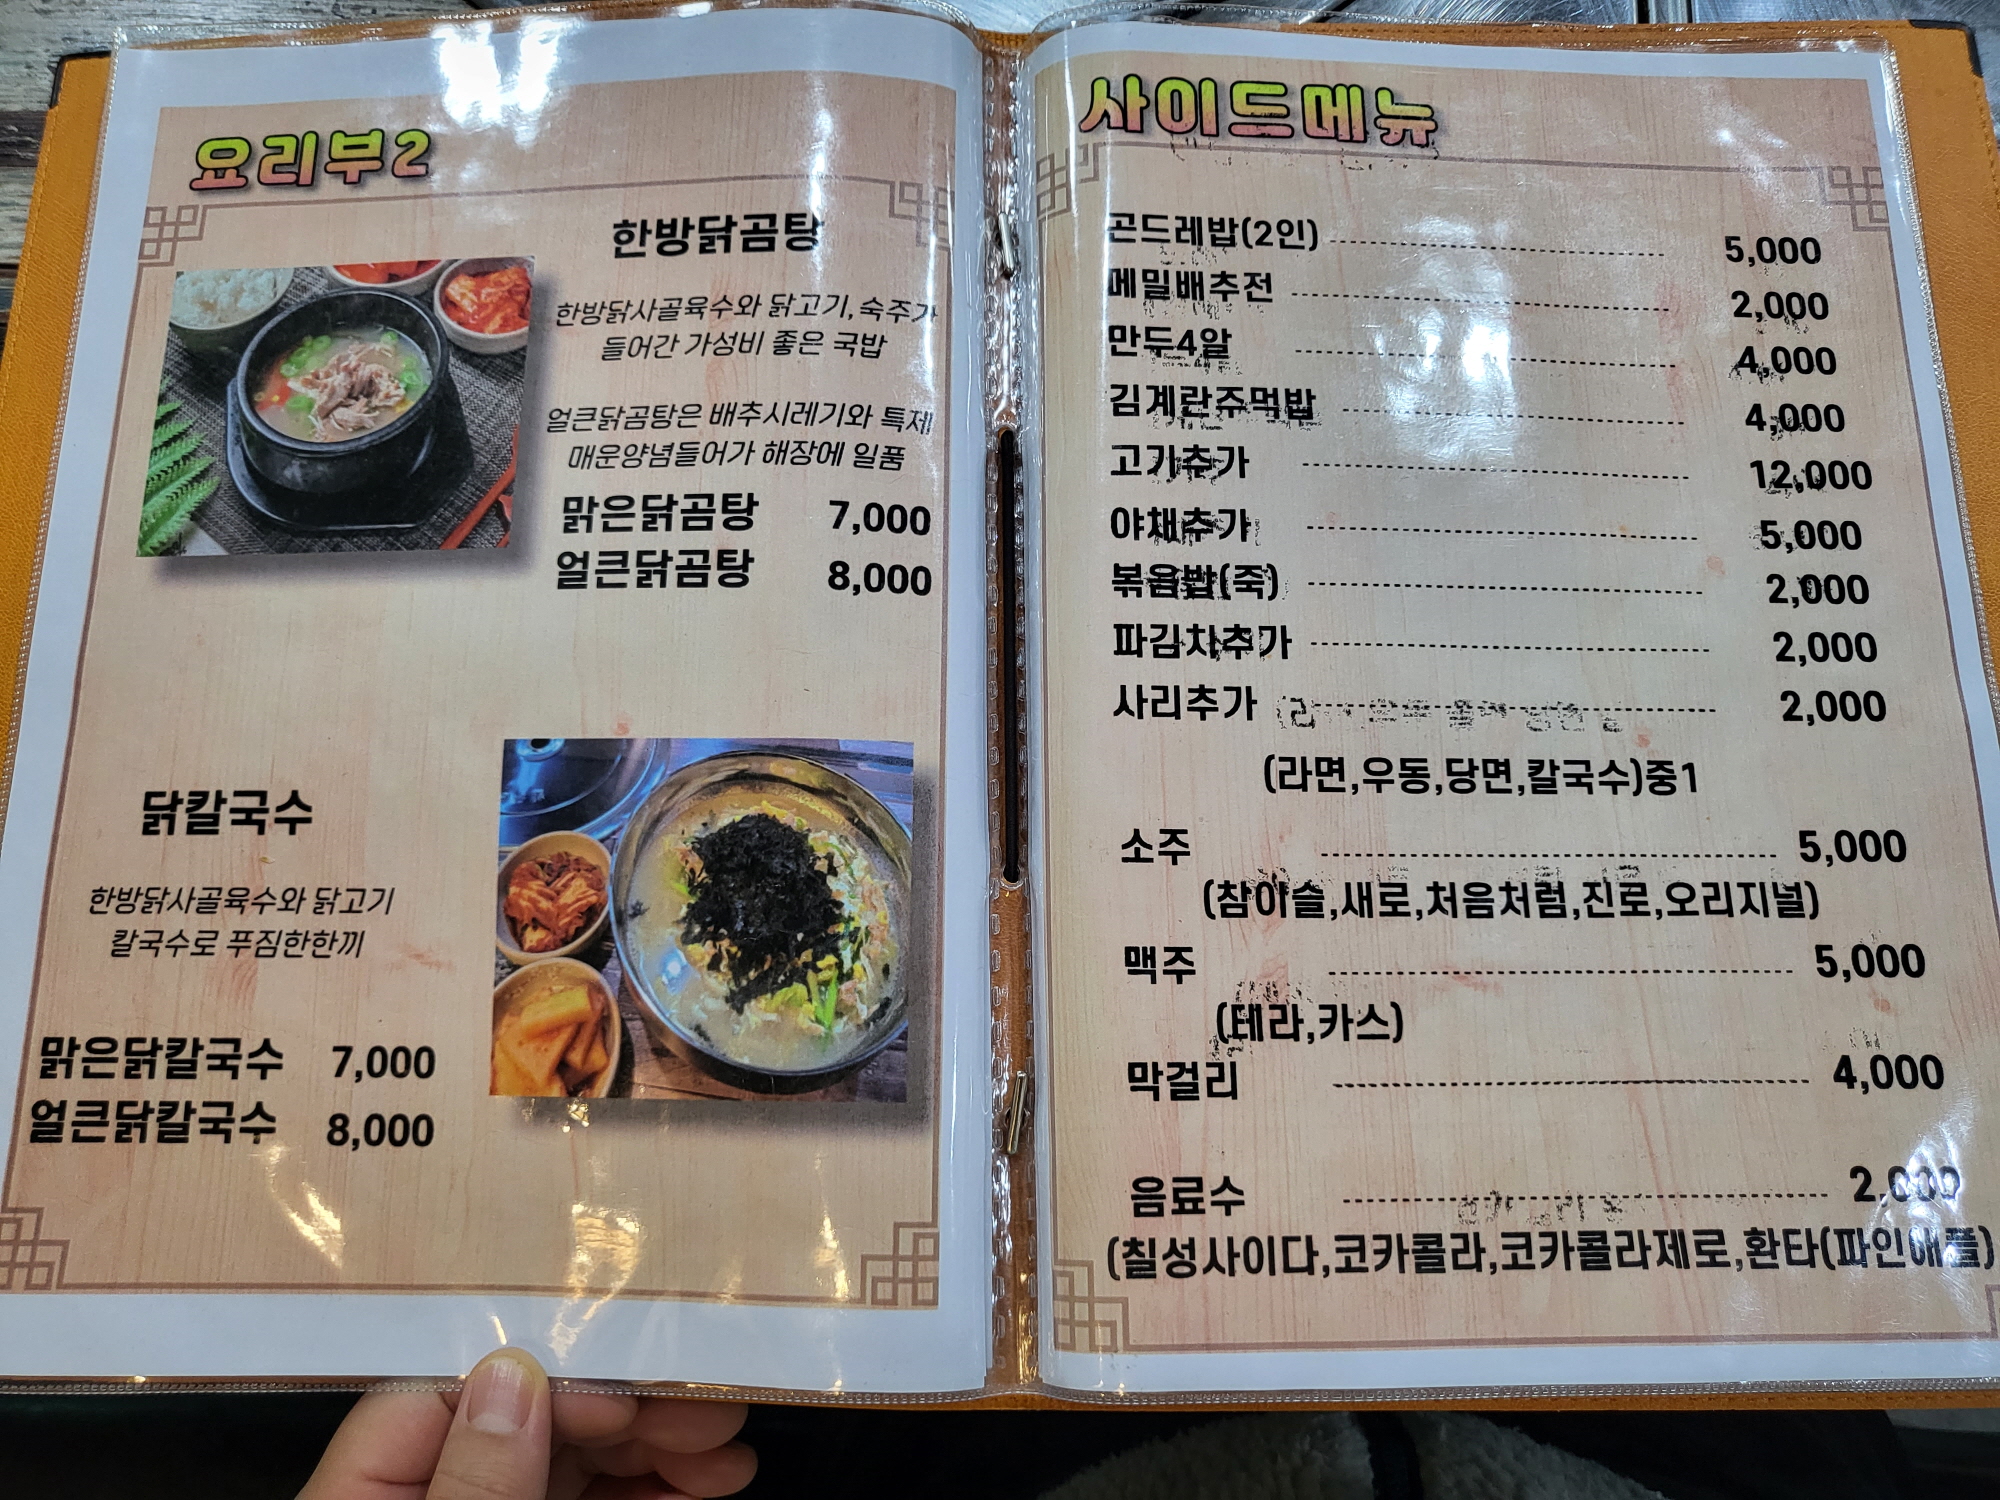 요리부2
한방닭곰탕
한방닭사골육수와 닭고기,숙주가
들어간 가성비 좋은 국밥
얼큰닭곰탕은 배추시레기와 특제
매운양념들어가 해장에 일품
맑은닭곰탕 7,000
얼큰닭곰탕 8,000
닭칼국수
한방닭사골육수와 닭고기
칼국수로 푸짐한한끼
맑은닭칼국수 7,000
얼큰닭칼국수 8,000
사이드메뉴
곤드레밥(2인) 5,000
메밀배추전 2,000
만두4알 4,000
김계란주먹밥 4,000
고기추가 12,000
야채추가 5,000
볶음밥(죽) 2,000
파김치추가 2,000
사리추가 2,000
(라면,우동,당면,칼국수)중1
소주 5,000
(참이슬,새로,처음처럼,진로,오리지널)
맥주 5,000
(테라,카스)
막걸리 4,000
음료수 2,000
(칠성사이다,코카콜라,코카콜라제로,환타(파인애플)